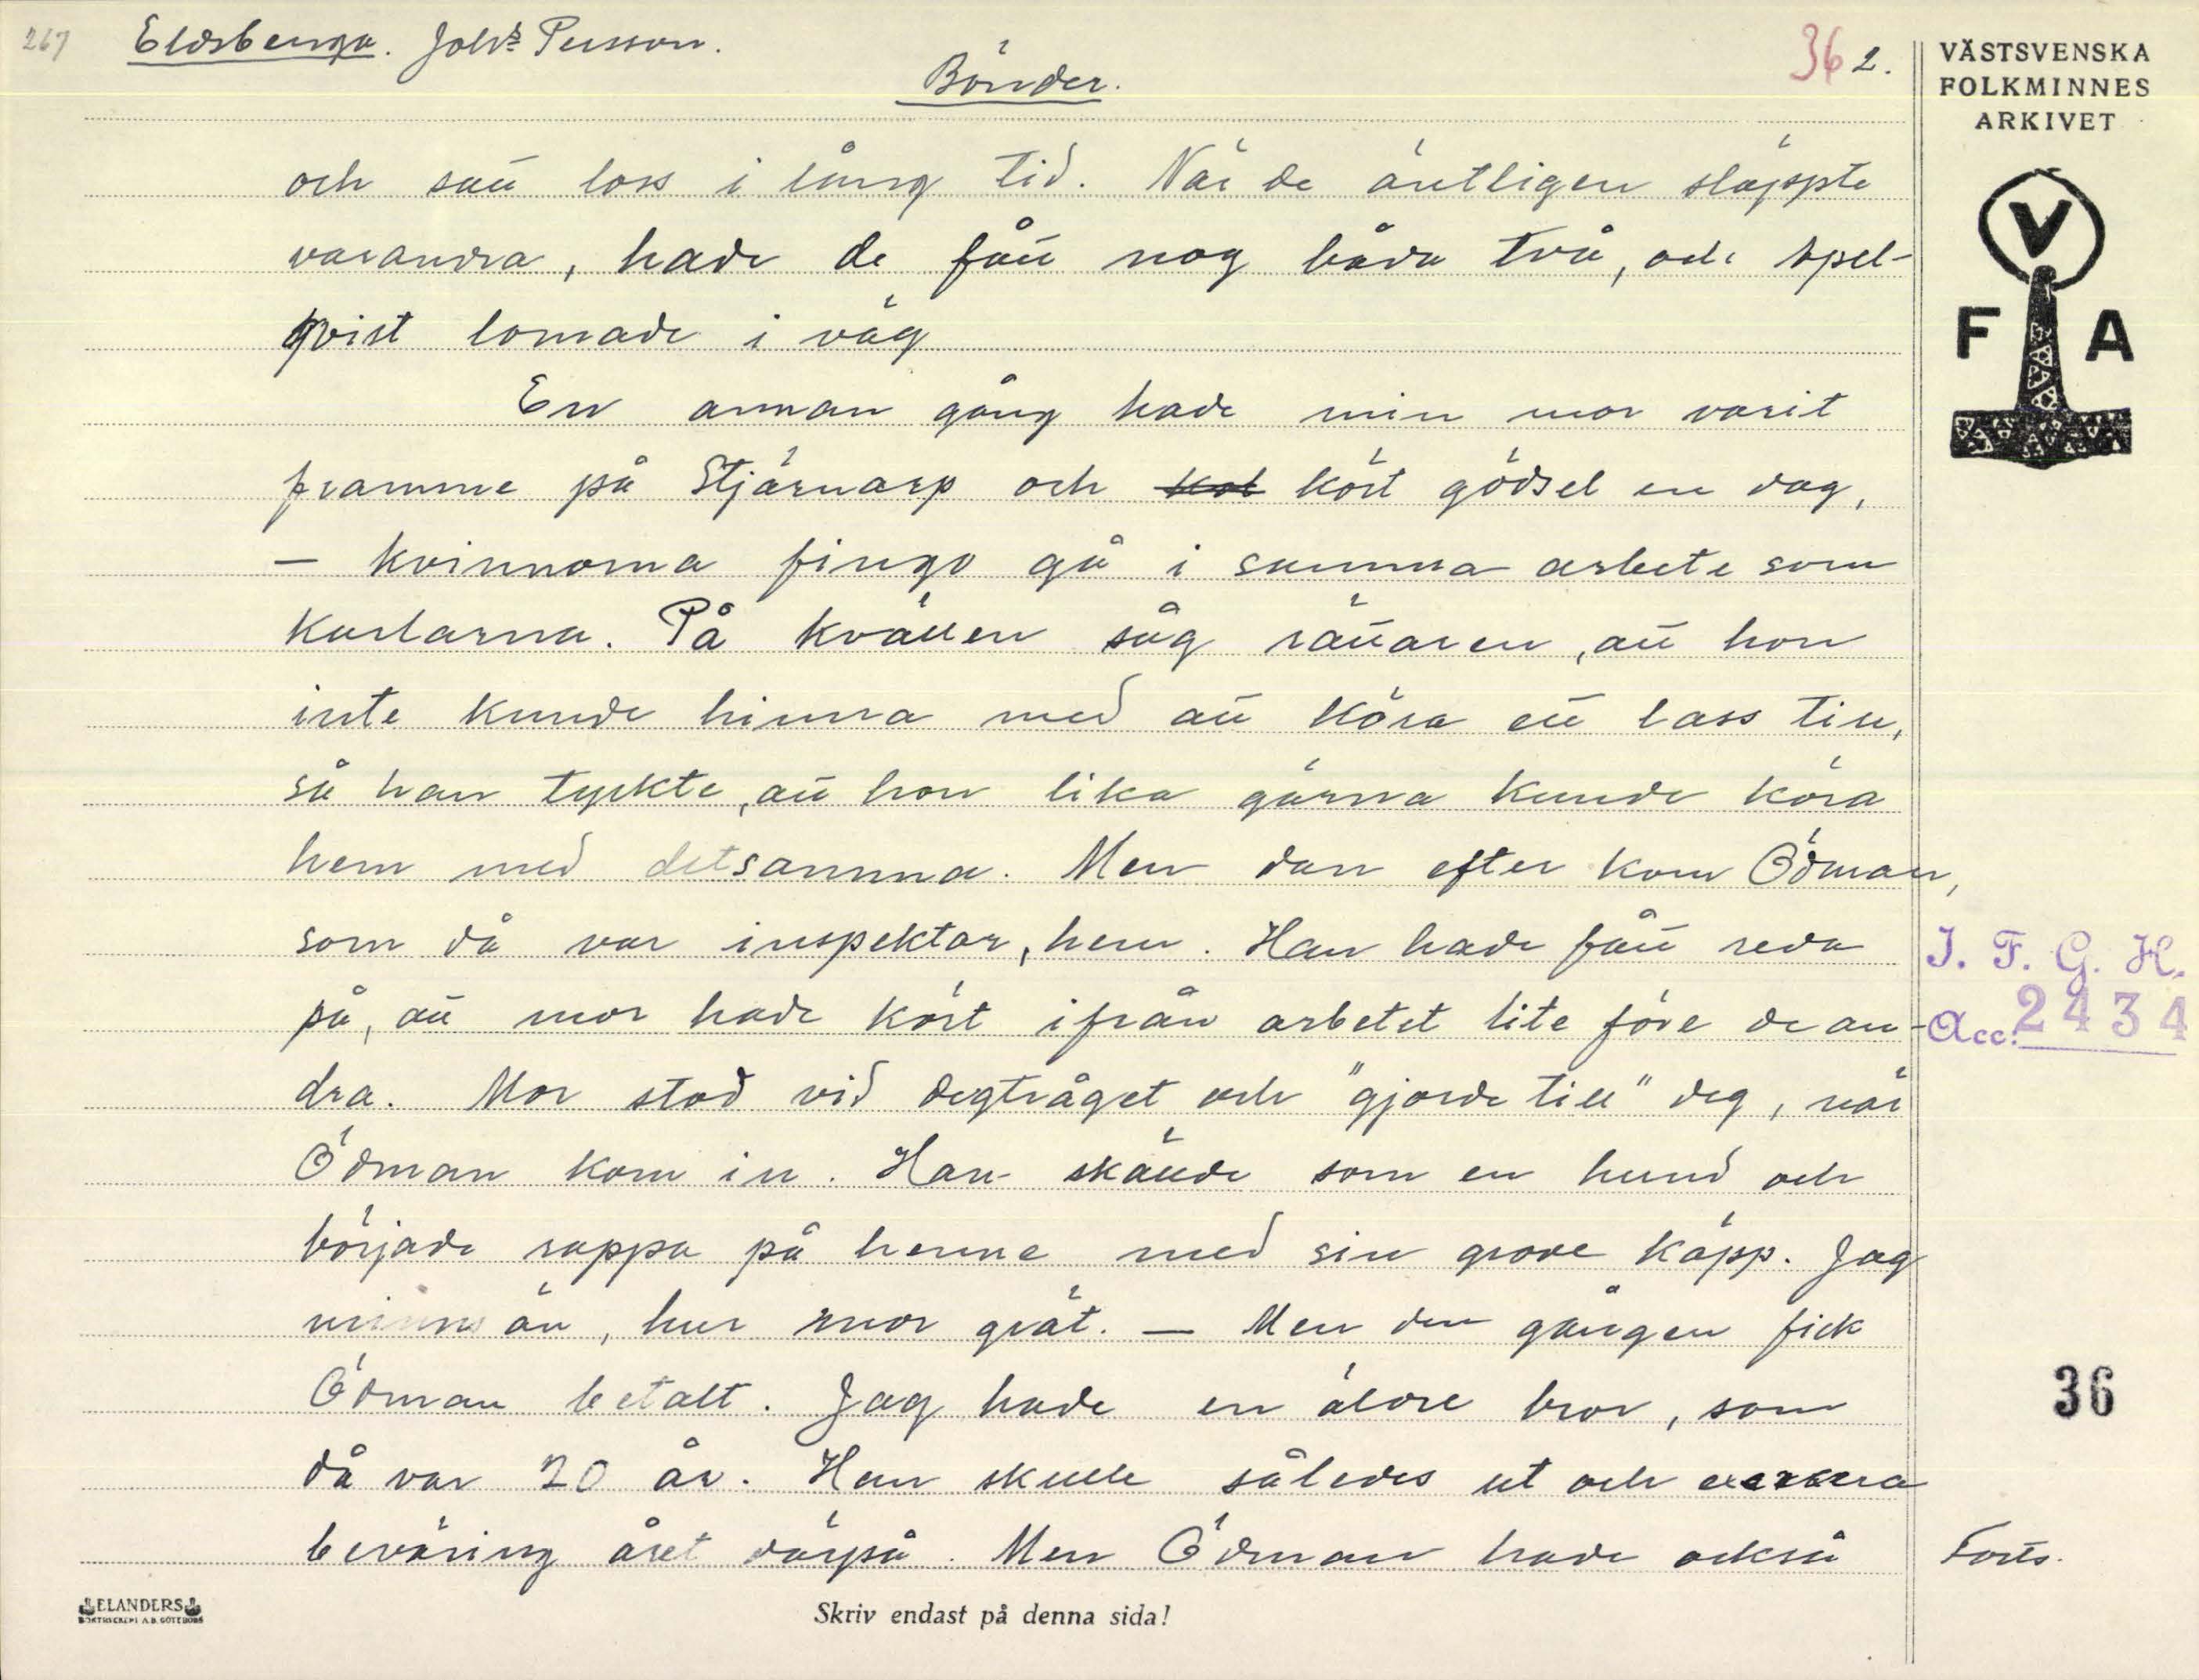 267 Eldsberga. Johs Persson.
Bönder.
36 2.
VÄSTSVENSKA
FOLKMINNES
ARKIVET
V
F A
och satt loss i lång tid. När de äntligen släppte
varandra, hade de fått nog båda två, och Apel-
qvist lomade i väg
En annan gång hade min mor varit
framme på Stjärnarp och kört gödsel en dag,
– kvinnorna fingo gå i samma arbete som
karlarna. På kvällen såg rättaren, att hon
inte kunde hinna med att köra ett lass till,
så han tyckte, att hon lika gärna kunde köra
hem med detsamma. Men dan efter kom Ödman,
som då var inspektor, hem. Han hade fått reda
på, att mor hade kört ifrån arbetet lite före de an-
dra. Mor stod vid degtråget och "gjorde till" deg, när
Ödman kom in. Han skällde som en hund och
började rappa på henne med sin grove käpp. Jag
minns än, hur mor grät. – Men den gången fick
Ödman betalt. Jag hade en äldre bror, som
då var 20 år. Han skulle således ut och exersera
beväring året därpå. Men Ödman hade också
I. F. G. H.
Acc. 2434
36
Forts.
ELANDERS
BOKTRYCKERI A.B. GÖTEBORG
Skriv endast på denna sida!